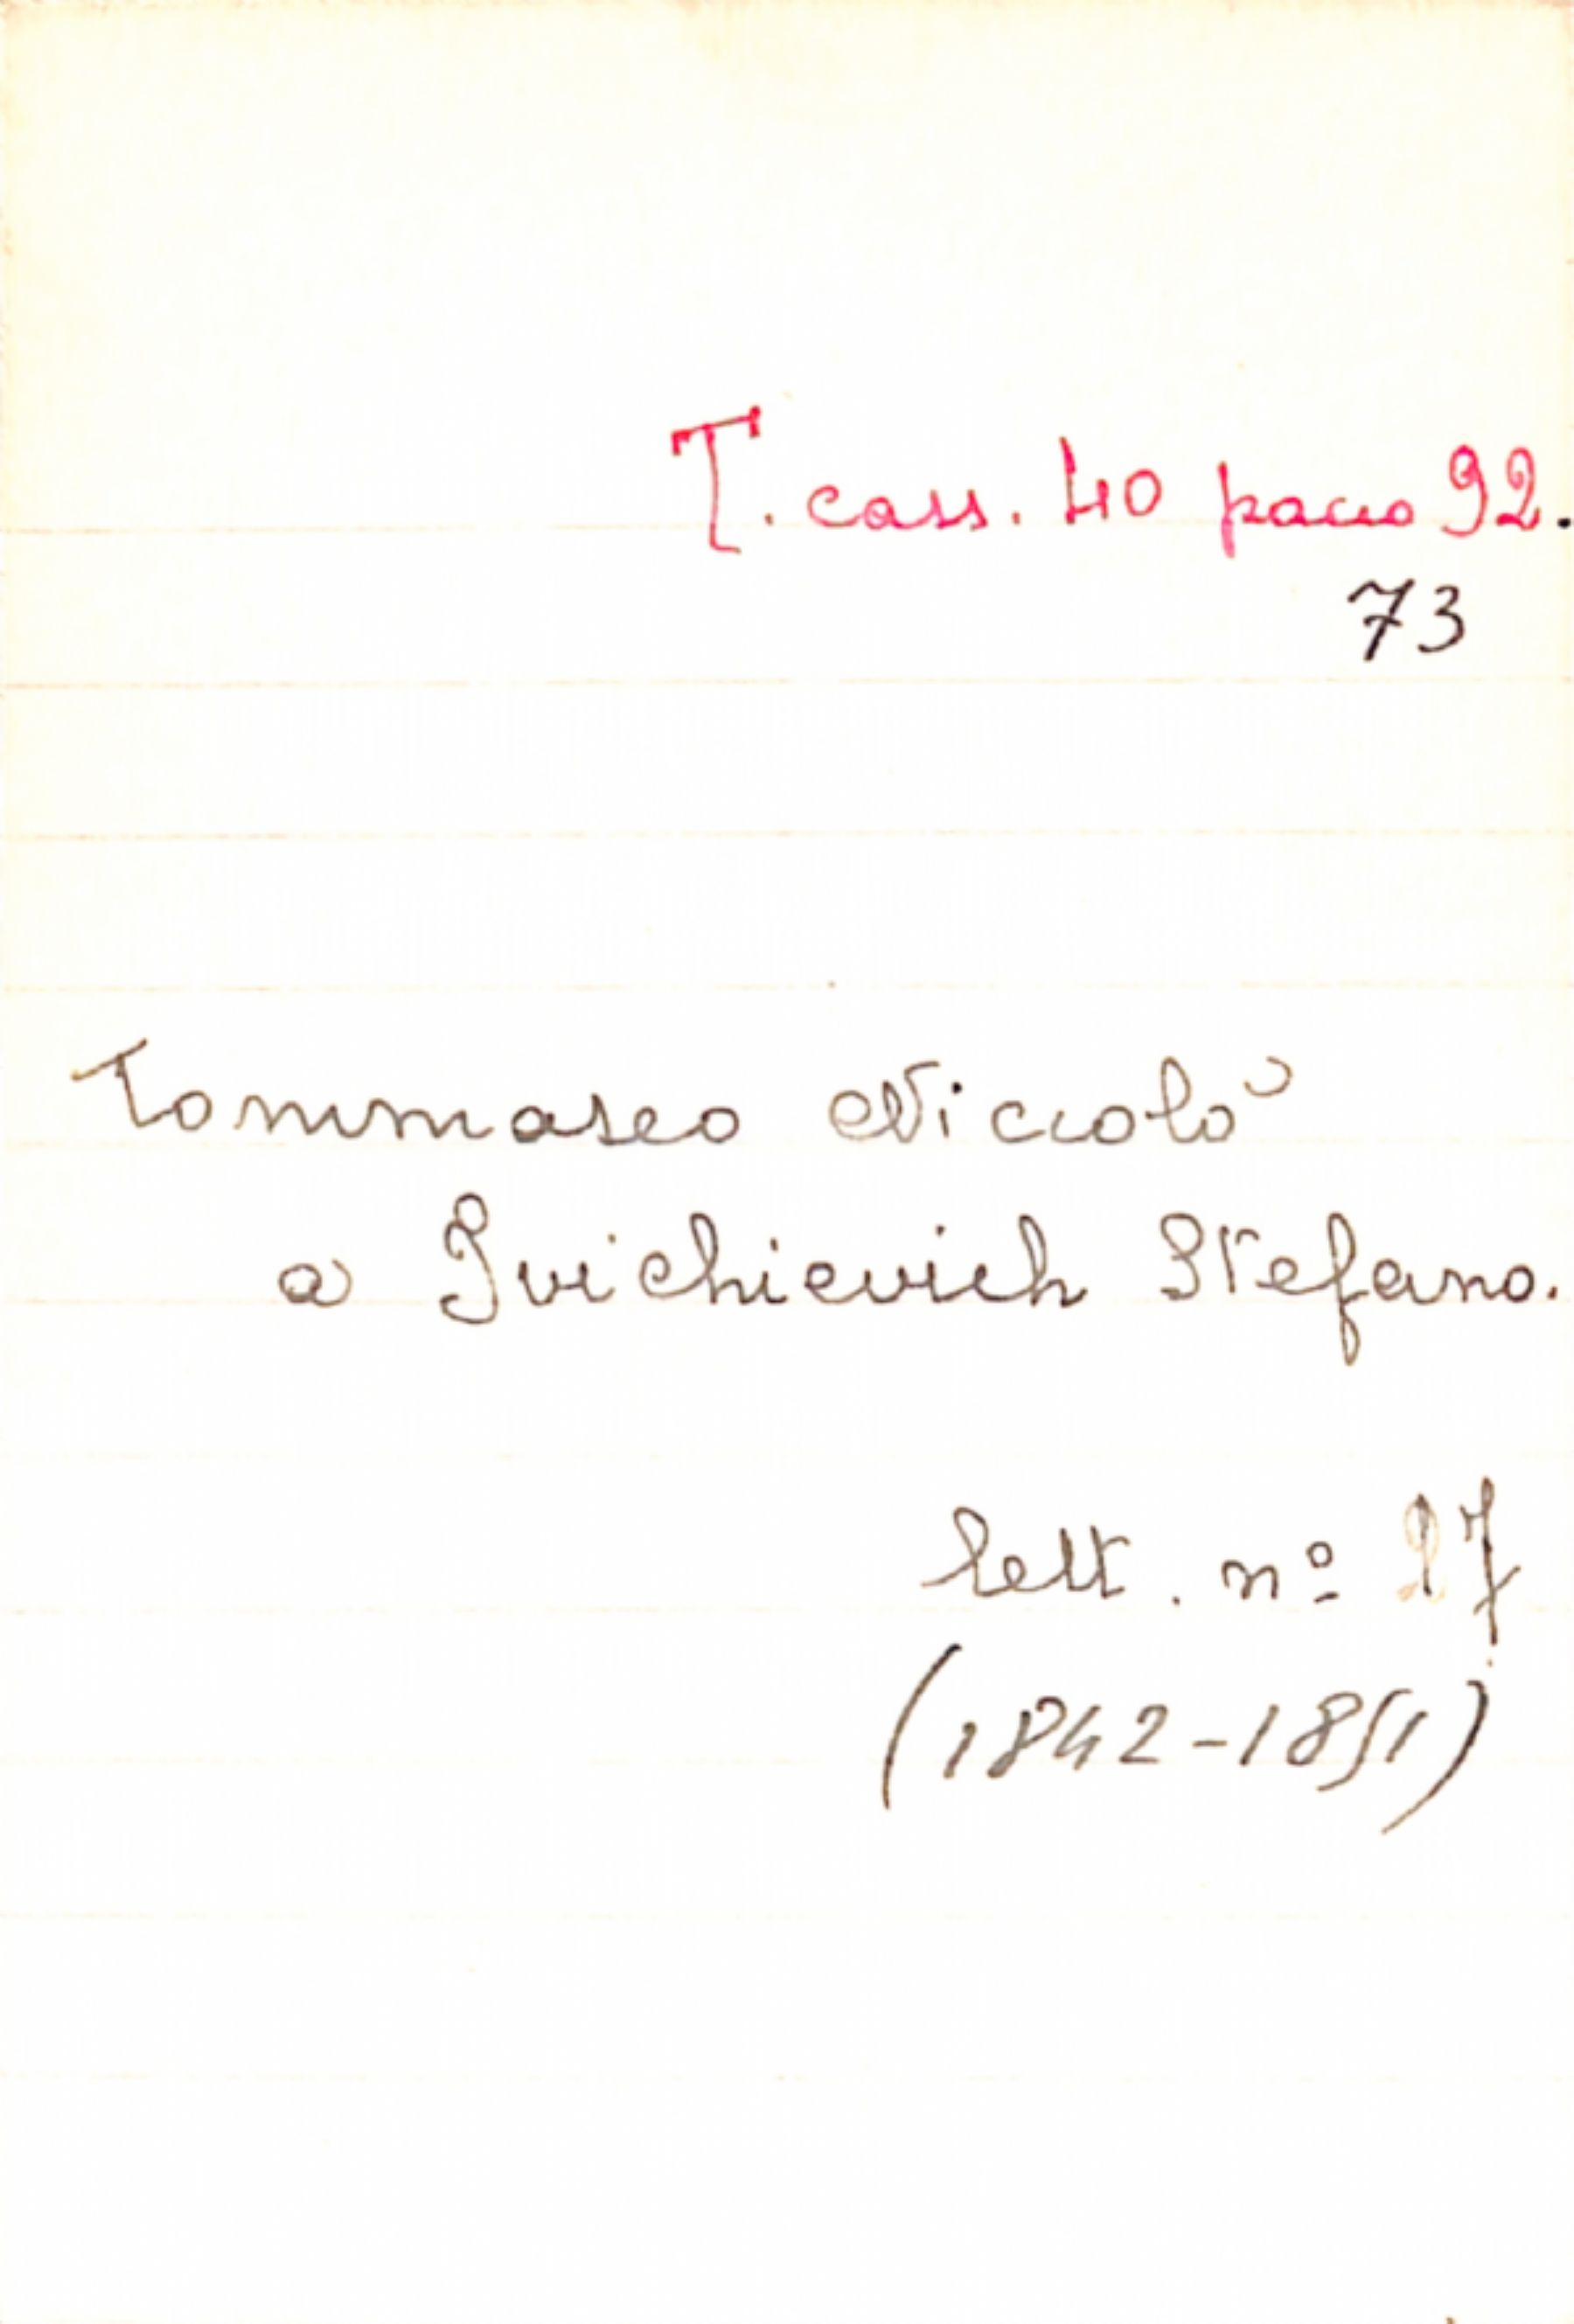 T. cass. 40 pacco 92.
73
Tommaseo Niccolò
a Ivichievich Stefano.
lett. nº 27
(1842-1851)